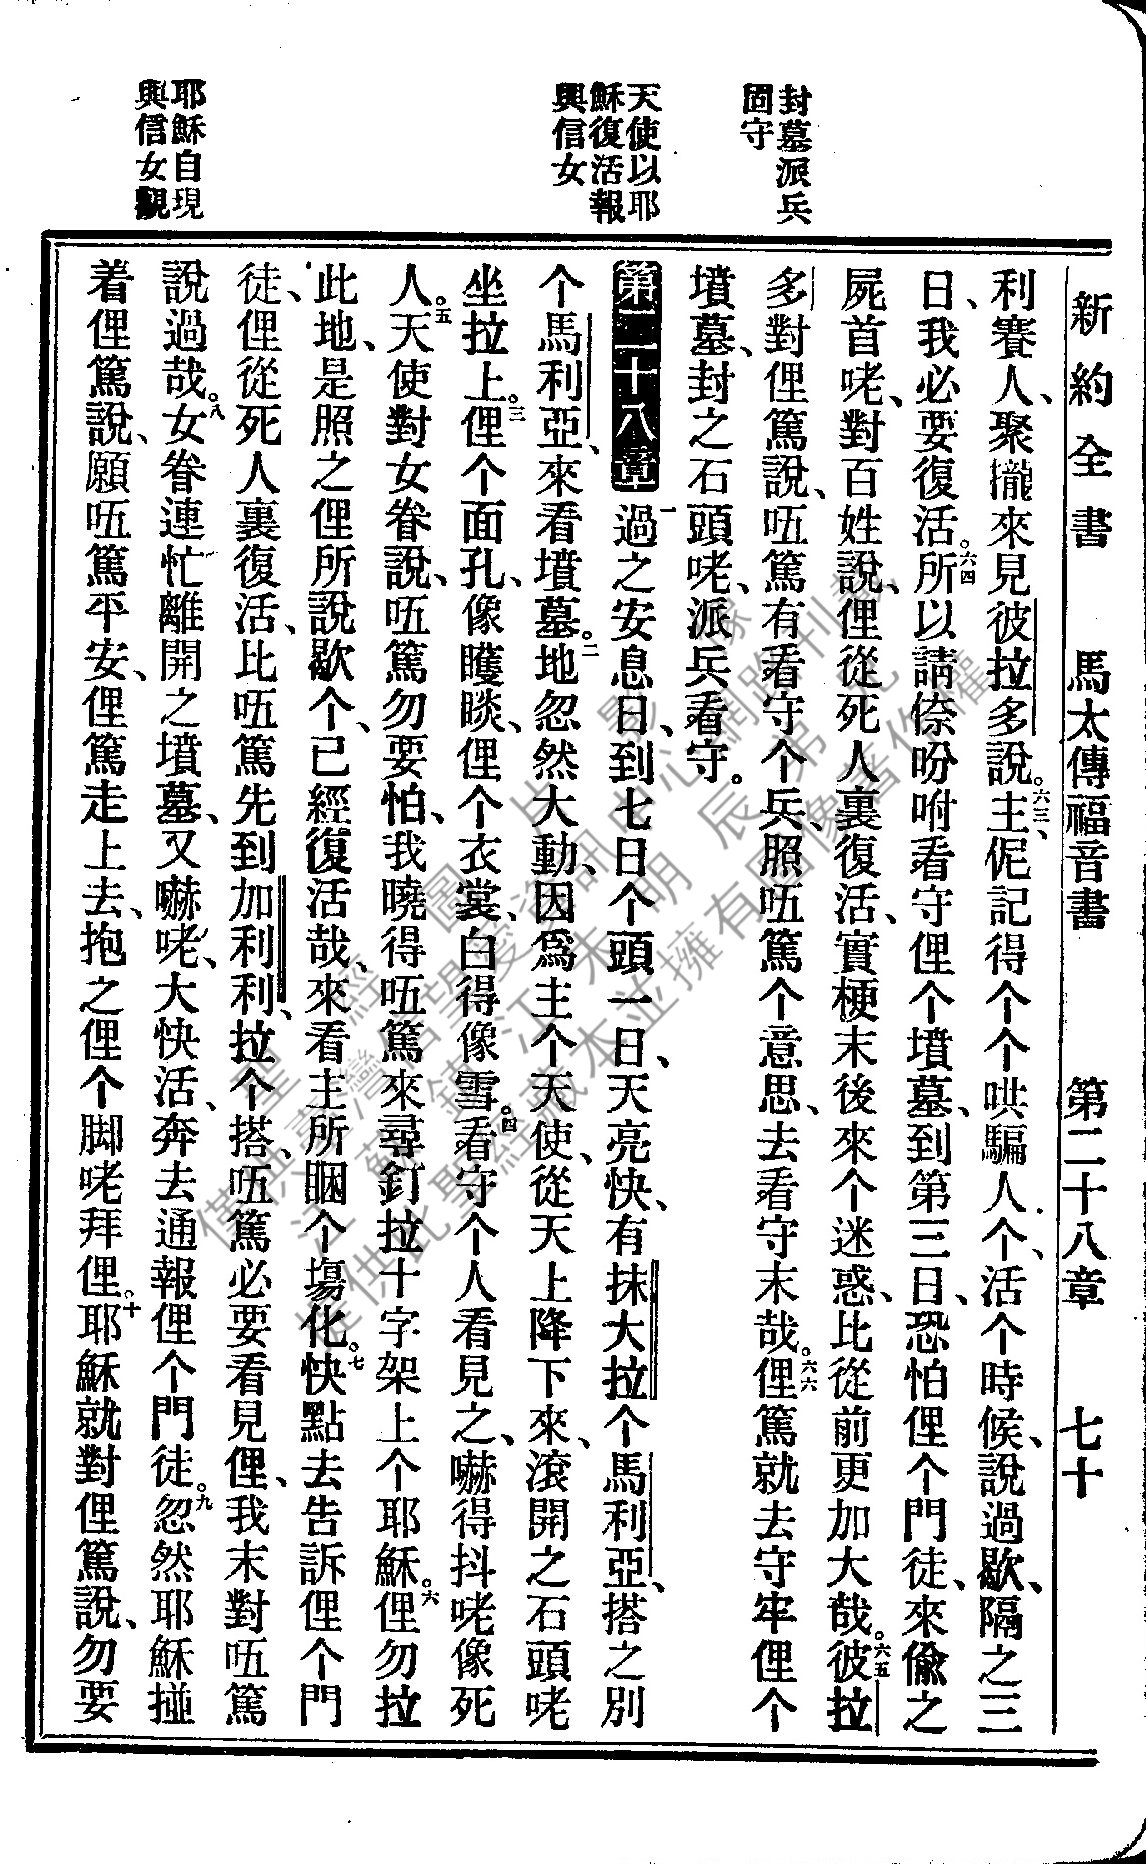 新約全書 馬太傳福音書 第二十八章 七十
封墓派兵
固守
天使以耶
穌復活報
與信女
耶穌自現
與信女觀
利賽人、聚攏來見彼拉多說。六三主、伲記得个个哄騙人个、活个時候、說過歇、隔之三
日、我必要復活。六四所以請倷吩咐看守俚个墳墓、到第三日、恐怕俚个門徒、來偸之
屍首咾、對百姓說、俚從死人裏復活、實梗末後來个迷惑、比從前更加大哉。六五彼拉
多對俚篤說、㕶篤有看守个兵、照㕶篤个意思、去看守末哉。六六俚篤就去守牢俚个
墳墓、封之石頭咾、派兵看守。
第二十八章 一過之安息日、到七日个頭一日、天亮快、有抹大拉个馬利亞、搭之別
个馬利亞、來看墳墓。二地忽然大動、因爲主个天使、從天上降下來、滾開之石頭咾
坐拉上。三俚个面孔、像矆睒、俚个衣裳、白得像雪。四看守个人看見之、嚇得抖咾像死
人。五天使對女眷說、㕶篤勿要怕、我曉得㕶篤來尋釘拉十字架上个耶穌。六俚勿拉
此地、是照之俚所說歇个、已經復活哉、來看主所睏个塲化。七快點去告訴俚个門
徒、俚從死人裏復活、比㕶篤先到加利利、拉个搭、㕶篤必要看見俚、我末對㕶篤
說過哉。八女眷連忙離開之墳墓、又嚇咾、大快活、奔去通報俚个門徒。九忽然耶穌搥
着俚篤說、願㕶篤平安、俚篤走上去、抱之俚个脚咾拜俚。十耶穌就對俚篤說、勿要
聖經圖片影像
僅供臺灣信望愛資訊中心網路刊載
江蘇鎮江朱明辰弟兄
提供此聖經藏本並擁有圖像著作權